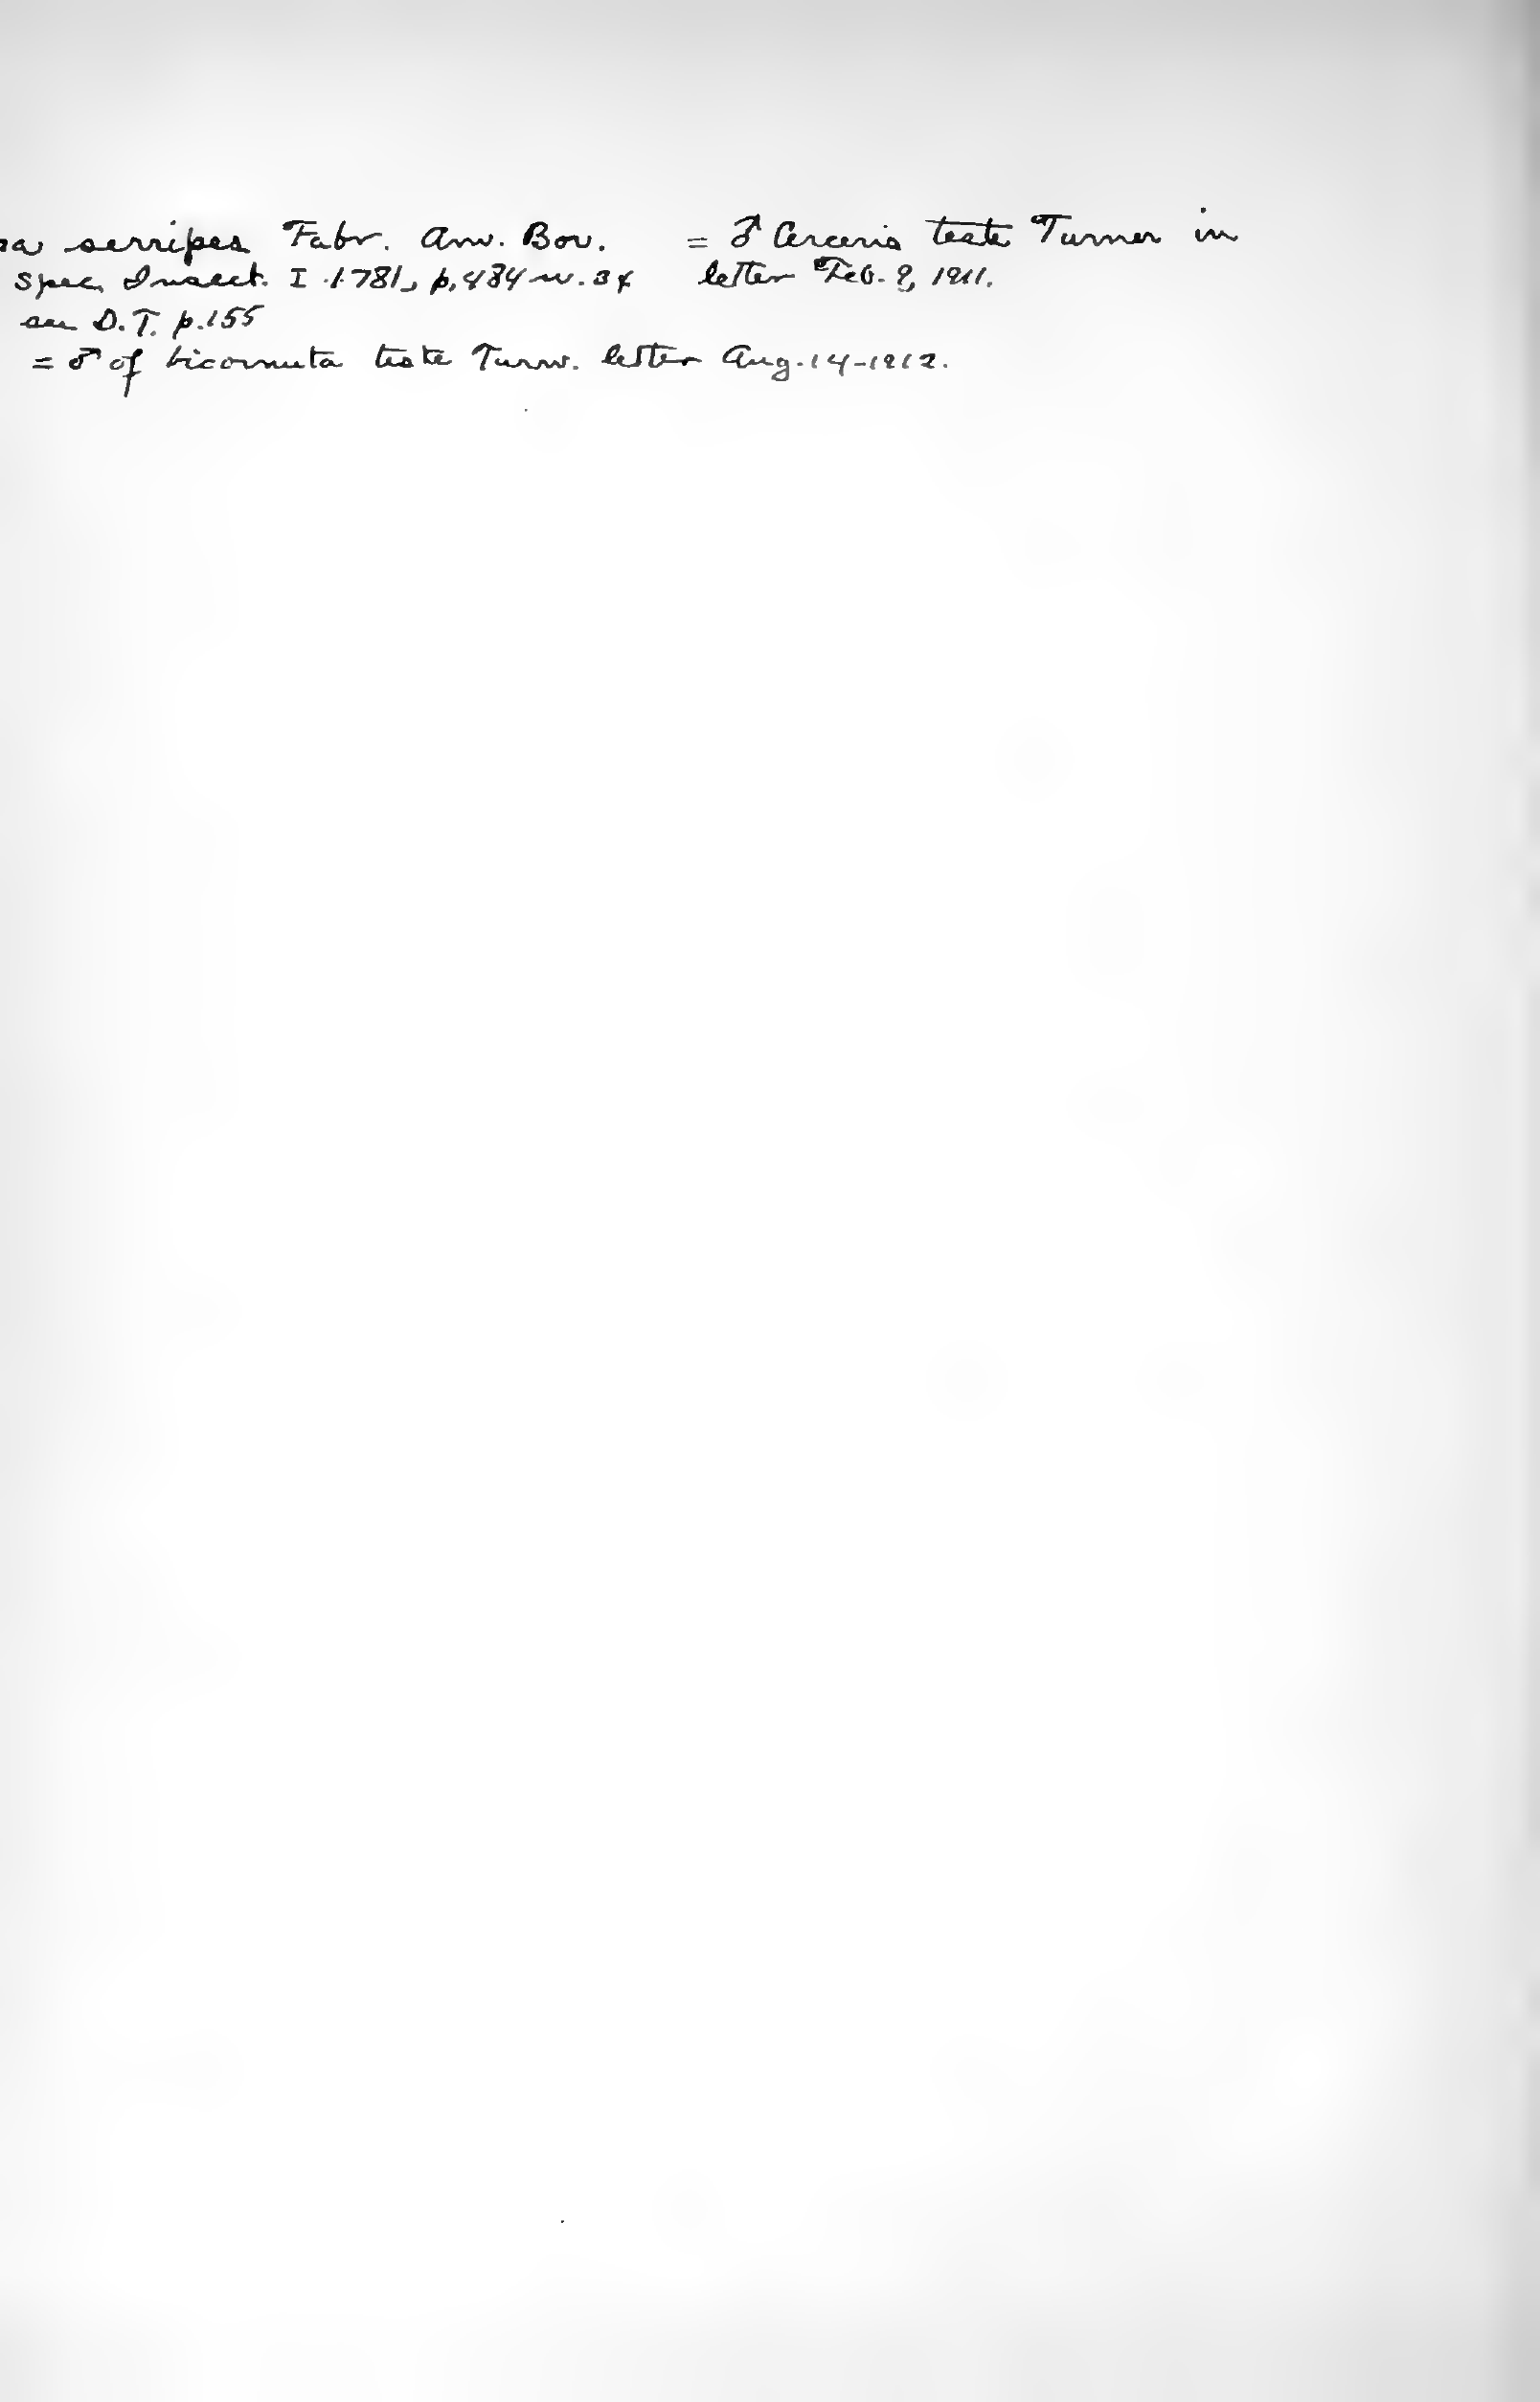 na serripes Fabr. Am. Bor. = ♂ Cerceris teste Turner in
Spec. Insect. I 1781, p. 484 n. 34 letter Feb. 9, 1911.
see D.T. p. 155
= ♂ of bicornuta teste Turns. letter Aug. 14-1912.